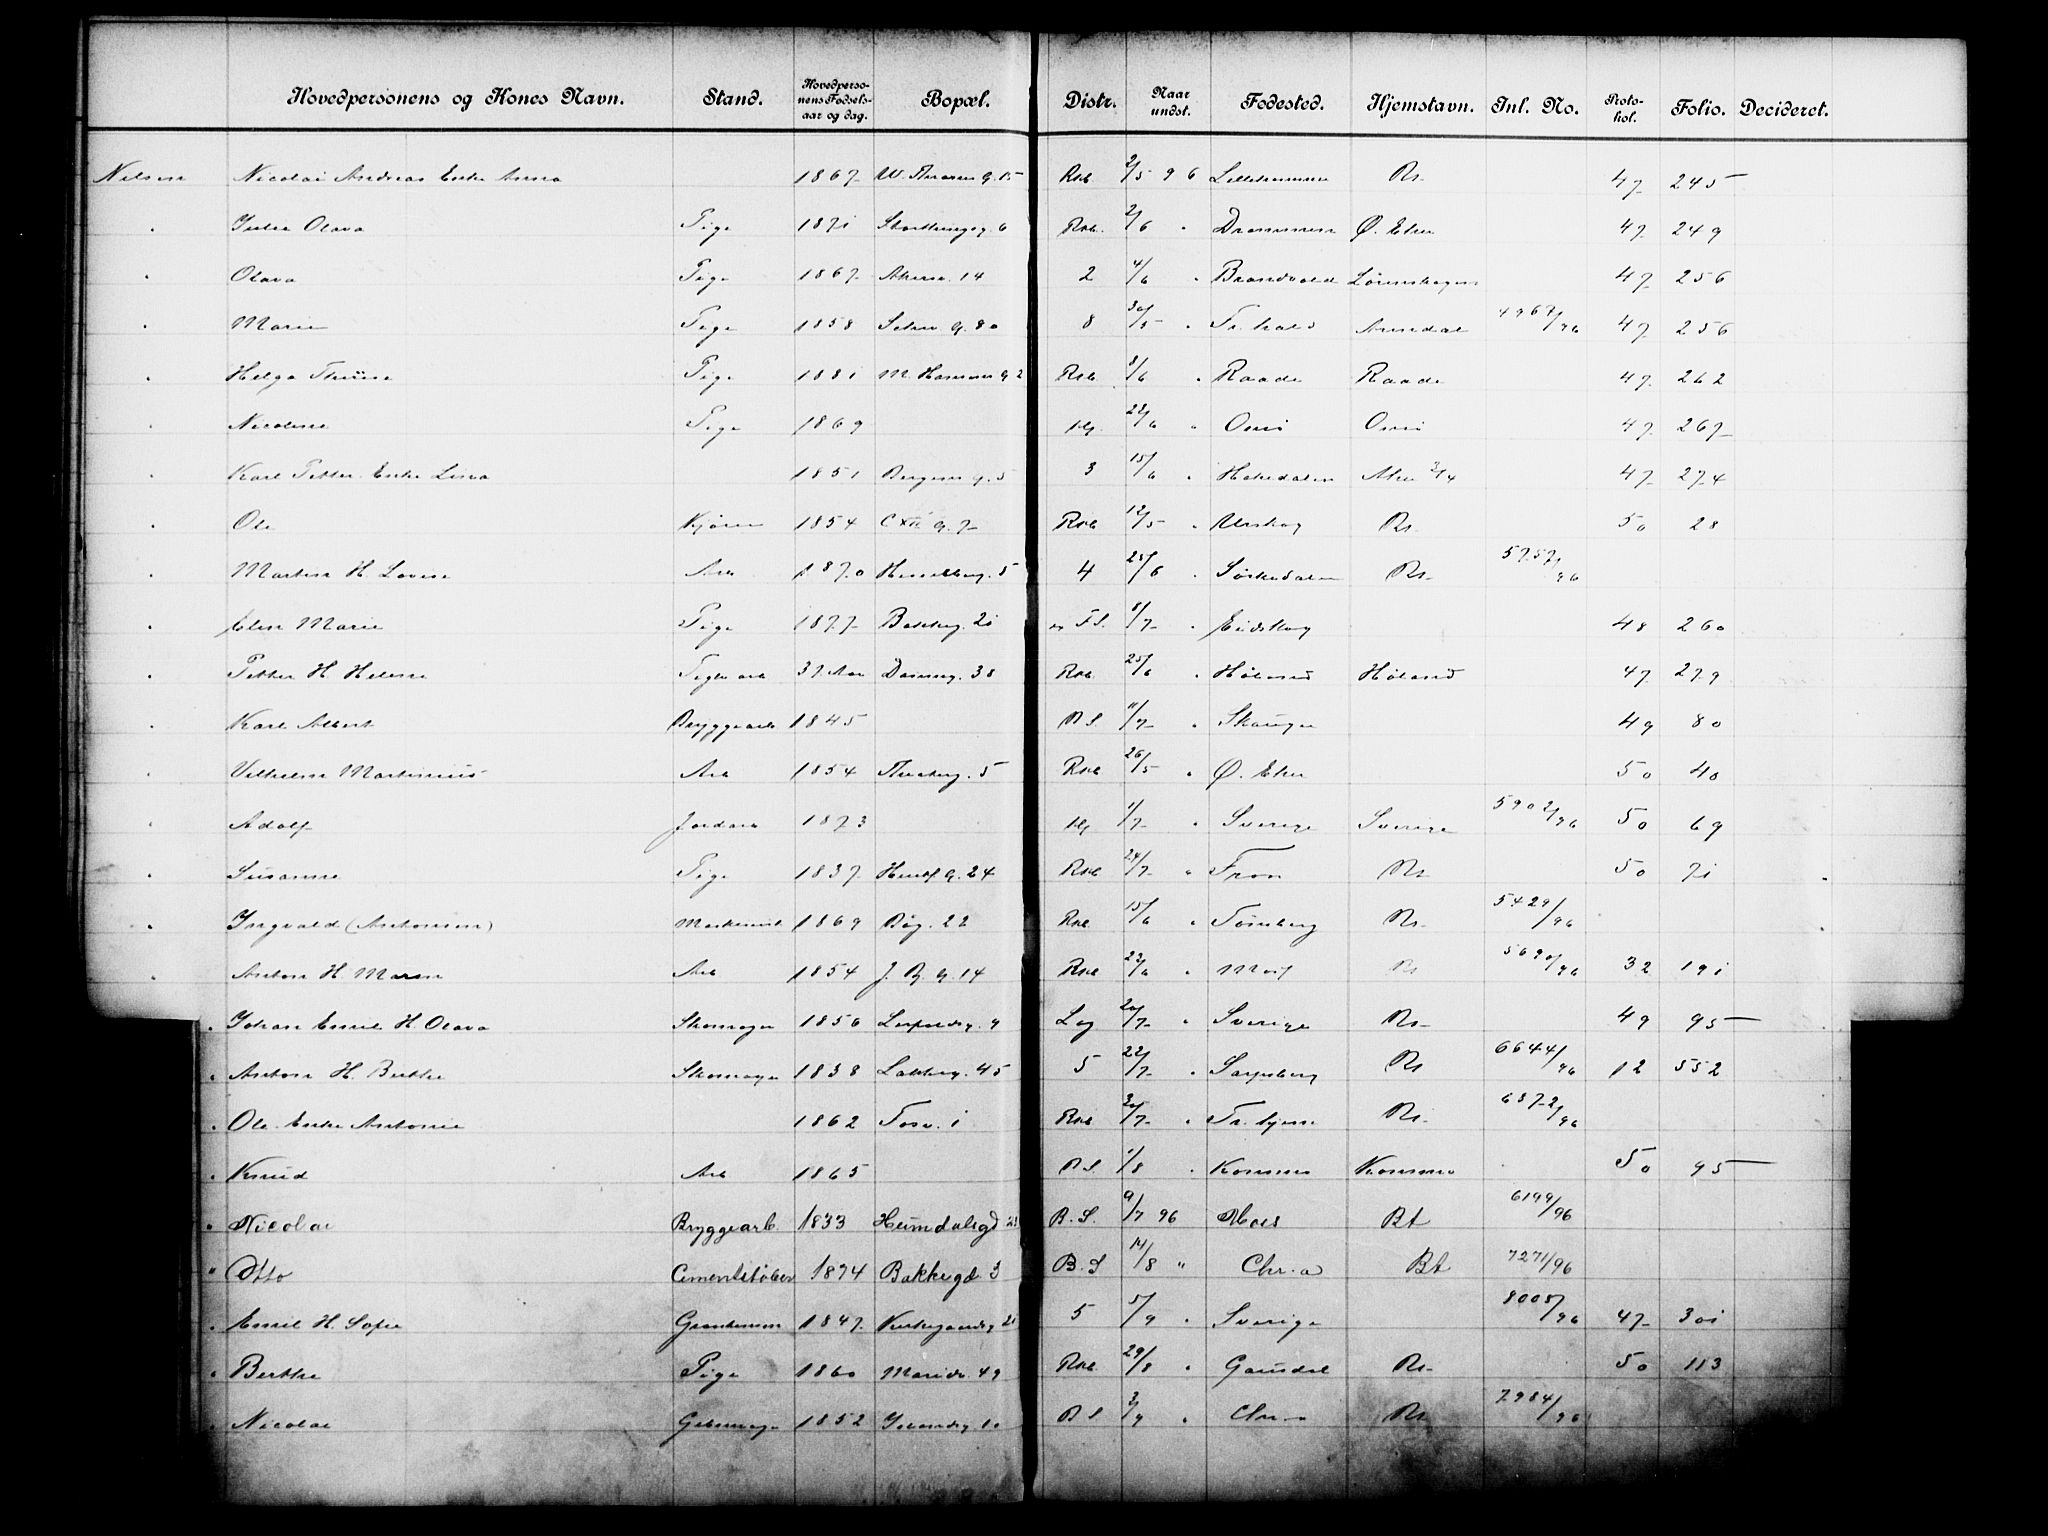 Hovedpersonens og Kones Navn. Stand. Hovedpersonens Fødselsaar og dag. Bopæl. Distr. Naar undst. Fødested. Hjemstavn. Inl. No. Protokol. Folio. Decideret.
Nilsen Nicolai Andreas Enke Anna 1867 Rsb. 2/5 96 Lillehammer Rs. 47 245
" Julie Olava Pige 1871 Storthingsg. 6 Rsb. 2/6 " Drammen Ø. Eker 47 249
" Olava Pige 1867 Akersv. 14 2 4/6 " Brandvold Lørenskogen 47 256
" Marie Pige 1858 Selvn g. 80 8 30/5 " Fr.hald Arendal 4967/96 47 256
" Helga Pige 1881 M. Hansens g. 2 Rsb. 8/6 " Raade Raade 47 262
" Nicoline Pige 1869 22/6 " Onsø Onsø 47 267
" Karl Petter Enke Lina 1851 Bergens g. 5 3 15/6 " Hakedalen Aker 3/4 47 274
" Ole Kjører 1854 g. 7 Rsb. 12/5 " Urskog Rs. 50 28
" Martin H. Lovise Arb 1870 Hesselbrg. 5 4 25/6 " Sørkedalen Rs. 5757/96
" Elen Marie Pige 1877 Bakkeg. 21 F.S. 8/7 " Eidskog 48 260
" Petter H. Helene Teglv arb 37 Aar Damveg. 38 Rsb. 25/6 " Høland Høland 47 279
" Karl Albert Bryggearb 1845 B.S. 11/7 " Skauger 49 80
" Vilhelm Martinius Arb 1854 5 Rsb. 26/5 " Ø. Eker 50 40
" Adolf Jordarb 1873 1/7 " Sverige Sverige 5902/96 50 69
" Susanne Pige 1837 g. 24 Rsb. 24/7 " Fron Rs. 50 71
" Ingvald (Antonsen) Maskinist 1869 Bøg. 22 Rsb. 15/6 " Tønsberg Rs. 5429/96
" Anton H. Maren Arb 1854 J. B. g. 14 Rsb. 22/6 " Rs 5690/96 32 191
" Johan Emil H. Olava Skomager 1856 Leopoldsg. 9 Lg 20/7 " Sverige Rs. 49 95
" Anton H. Berthe Skomager 1838 Lakkeg. 45 5 22/7 " Sarpsberg Rs 6644/96 12 552
" Ole Enke Antonie 1862 Fosv. 1 Rsb. 30/7 " Rs. 6372/96
" Knud Arb 1865 B.S. 1/8 " Komnes Komnes 50 95
" Nicolai Bryggearb. 1833 Heimdalsgd B.S. 9/7 96 Moss Bt 6199/96
" Otto Cementstøber 1874 Bakkegd. 3 B.S 14/8 " Chr.a Bt 7271/96
" Emil H. Sofie 1847 Kirkegaardsg. 21 5 5/9 " Sverige 8005/96 47 301
" Berthe Pige 1860 Marido. 49 Rsb. 29/8 " Gausdal Rs. 50 113
" Nicolai 1852 B.S 3/9 " Chr.a Rs. 7984/96